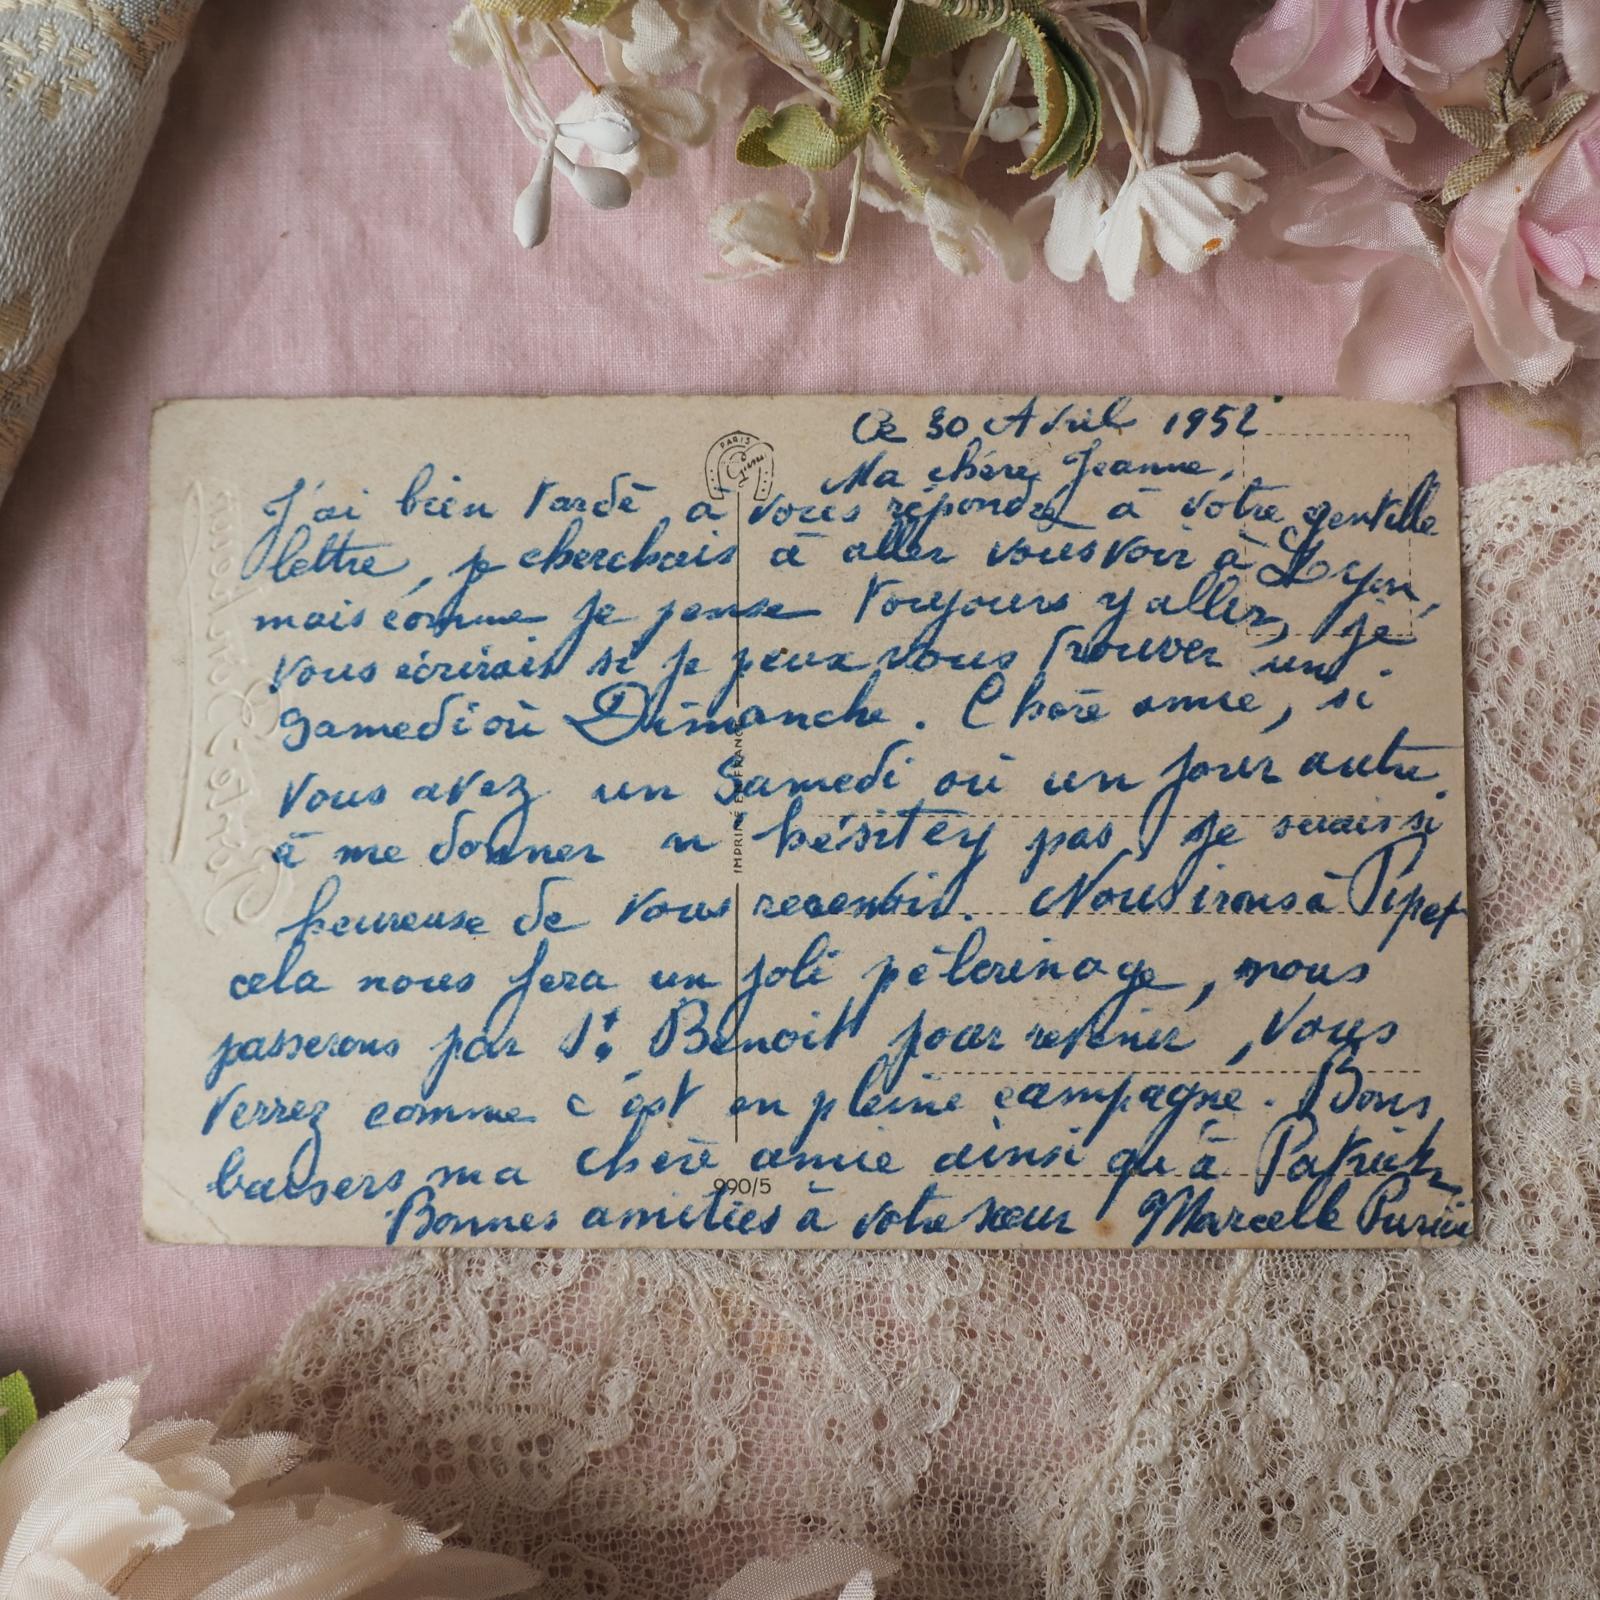 Ce 30 Avril 1952
Ma chère Jeanne,
J'ai bien tardé à vous répondre à votre gentille
lettre, je cherchais à aller vous voir à Lyon,
mais comme je pense toujours y aller, je
vous écrirais si je peux vous trouver un
Samedi où Dimanche. Chère amie, si
vous avez un Samedi où un jour autre
à me donner n'hésitez pas, je serais si
heureuse de vous recevoir. Nous irons à Pipet
cela nous fera un joli pélerinage, nous
passerons par St. Benoit pour revenir, vous
verrez comme c'est en pleine campagne. Bons
baisers ma chère amie ainsi qu'à Patrick
Bonnes amitiés à votre sœur Marcelle
PARIS
IMPRIMÉ EN FRANCE
990/5
Carte Postale